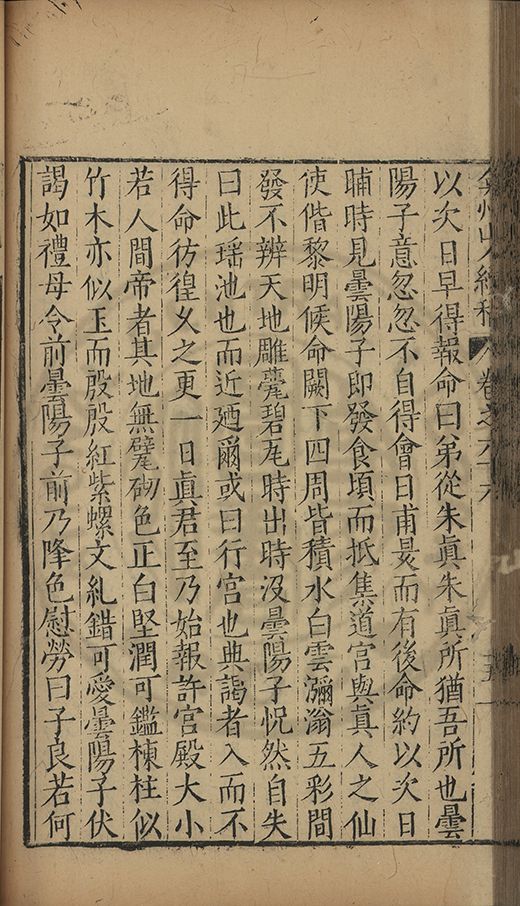 弇州山人續稿 卷之六十六
以次日早得報命曰弟從朱眞朱眞所猶吾所也曇
陽子意忽忽不自得會日甫昃而有後命約以次日
晡時見曇陽子即發食頃而抵集道宮與眞人之仙
使偕黎明候命闕下四周皆積水白雲瀰滃五彩間
發不辨天地雕甍碧瓦時出時沒曇陽子怳然自失
曰此瑤池也而近廼爾或曰行宮也典謁者入而不
得命彷徨久之更一日眞君至乃始報許宮殿大小
若人間帝者其地無甓砌色正白堅潤可鑑棟柱似
竹木亦似玉而殷殷紅紫螺文糺錯可愛曇陽子伏
謁如禮母令前曇陽子前乃降色慰勞曰子良若何